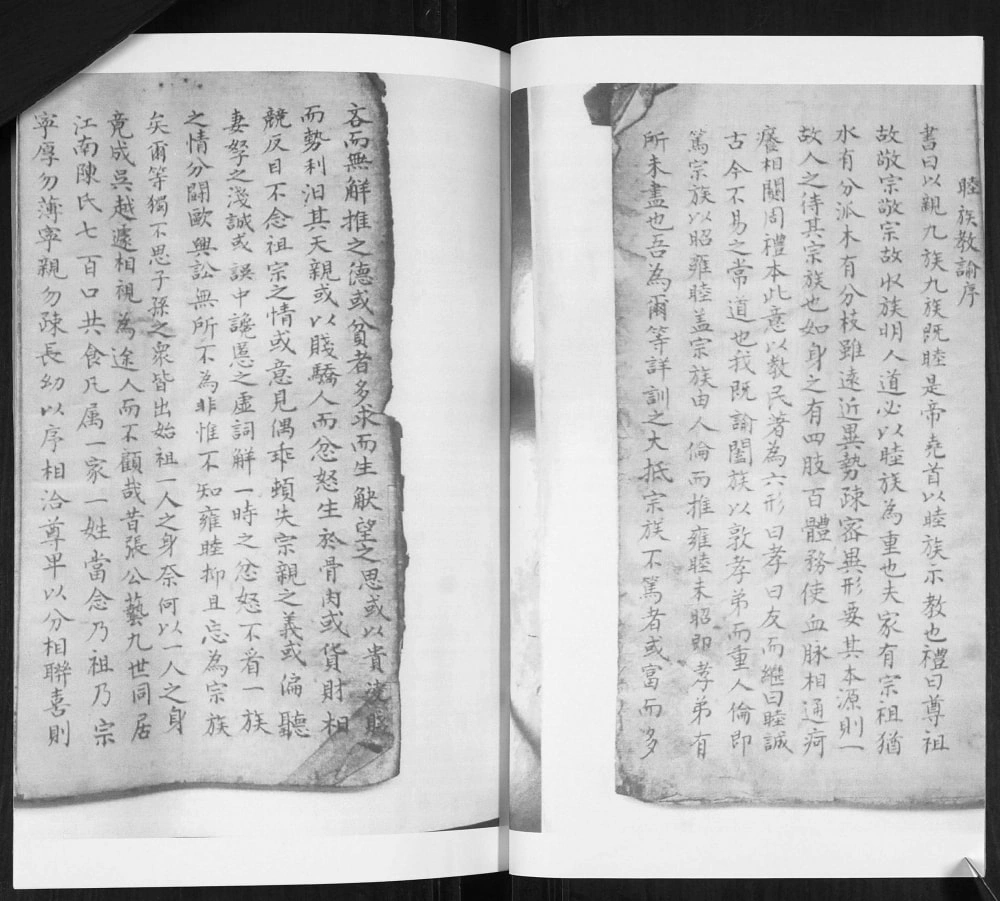 睦族教諭序
書曰以親九族九族既睦是帝堯首以睦族示教也禮曰尊祖
故敬宗敬宗故收族明人道必以睦族為重也夫家有宗祖猶
水有分派木有分枝雖遠近異勢疎密異形要其本源則一
故人之待其宗族也如身之有四肢百體務使血脉相通疴
癢相關周禮本此意以教民著為六形曰孝曰友而繼曰睦誠
古今不易之常道也我既諭闔族以敦孝弟而重人倫即
篤宗族以昭雍睦盖宗族由人倫而推雍睦未昭即孝弟有
所未盡也吾為爾等詳訓之大抵宗族不篤者或富而多
吝而無解推之德或貧者多求而生觖望之思或以貴凌賤
而勢利汨其天親或以賤驕人而忿怒生於骨肉或貨財相
競反目不念祖宗之情或意見偶乖頓失宗親之義或偏聽
妻孥之淺誠或誤中讒慝之虛詞解一時之忿怒不看一族
之情分鬪歐興訟無所不為非惟不知雍睦抑且忘為宗族
矣爾等獨不思子孫之衆皆出始祖一人之身奈何以一人之身
竟成吳越遽相視為途人而不顧哉昔張公藝九世同居
江南陳氏七百口共食凡属一家一姓當念乃祖乃宗
寧厚勿薄寧親勿疎長幼以序相洽尊卑以分相聯喜則